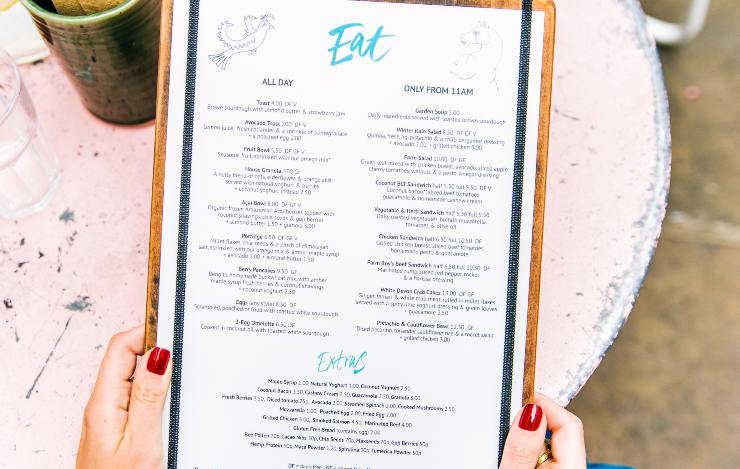 Eat
ALL DAY
Toast 4.00 DF V
Brown sourdough with almond butter & strawberry jam
Avocado Toast 7.00 DF V
Lemon juice, fresh coriander & a sprinkle of pomegranate
+ a poached egg 2.00
Fruit Bowl 5.50 DF GF V
Seasonal fruit, sprinkled with our omega mix
House Granola 7.00 GF
A nutty blend of oats, elderflower & orange zest
served with natural yoghurt & berries
+ coconut yoghurt instead 2.50
Açai Bowl 8.00 DF V
Organic frozen Amazonian Açai berries topped with
coconut shavings, chia seeds & goji berries
+ almond butter 1.50 + granola 3.00
Porridge 6.50 DF GF V
Millet flakes, chia seeds & a pinch of Himalayan
salt, sprinkled with our omega mix & amber maple syrup
+ avocado 2.00 + almond butter 1.50
Berry Pancakes 9.50 GF
Benoit's homemade buckwheat mix with amber
maple syrup fresh berries & coconut shavings
+ coconut yoghurt 2.50
Eggs (any style) 6.50 DF
Scrambled, poached or fried with toasted white sourdough
3-Egg Omelette 6.50 DF
Cooked in coconut oil with toasted white sourdough
ONLY FROM 11AM
Garden Soup 5.00
Daily ingredients served with toasted brown sourdough
Winter Kale Salad 8.50 DF GF V
Quinoa, fresh fig, pistachio & a chilli bergamot dressing
+ avocado 2.00, + grilled chicken 3.00
Farm Salad 10.00 DF GF
Green leaf mixed with chicken breast, avocado, sliced apple
cherry tomatoes, walnuts & a pesto vinegar dressing
Coconut BLT Sandwich half 5.50 full 9.50 DF V
Coconut bacon, sliced beef tomatoes
guacamole & homemade cashew cream
Vegetable & Herb Sandwich half 5.50 full 9.50
Daily roasted vegetables, buffalo mozzarella
tomatoes & olive oil
Chicken Sandwich half 6.50 full 10.50 DF
Grilled chicken breast, sliced beef tomatoes,
homemade pesto & guacamole
Farm Boy's Beef Sandwich half 6.50 full 10.50 DF
Marinated rump, sliced red pepper, rocket
& a harissa dressing
White Devon Crab Cakes 13.00 DF GF
Ginger, & white crab meat, rolled in millet flakes
served with a spicy lime yoghurt dressing & green leaves
+ guacamole 2.50
Pistachio & Cauliflower Bowl 12.50 GF
Diced pecorino, coriander cauliflower rice & a rocket salad
+ grilled chicken 3.00
Extras
Maple Syrup 1.00, Natural Yoghurt 1.00, Coconut Yoghurt 2.50
Coconut Bacon 3.50, Cashew Cream 2.50, Guacamole 2.50, Granola 3.00
Fresh Berries 3.50, Diced tomato 75p, Avocado 2.00, Steamed Spinach 2.00, Cooked Mushrooms 2.50
Mozzarella 1.00, Poached Egg 2.00, Fried Egg 2.00
Grilled Chicken 3.00, Smoked Salmon 4.50, Marinated Beef 4.00
Gluten Free Bread (contains egg) 2.00
Bee Pollen 70p, Cacao Nibs 50p, Chia Seeds 70p, Flaxseeds 70p, Goji Berries 50p
Hemp Protein 90p, Maca Powder 1.20, Spirulina 90p, Tumerica Powder 50p